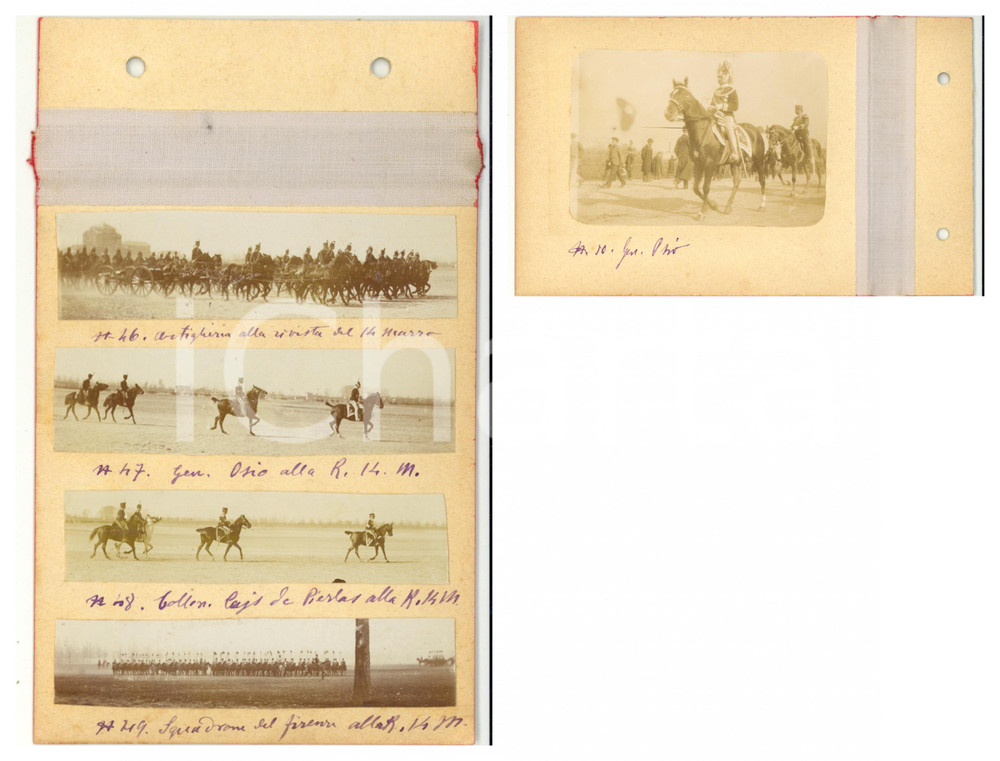 N 46. Artiglieria alla rivista del 14 Marzo
N 47. Gen. Osio alla R. 14. M.
N 48. Collon. Cays de Pierlas alla R. 14 M.
N 49. Squadrone del firenze alla R. 14 M.
N. 10. Gen. Osio
iCharta